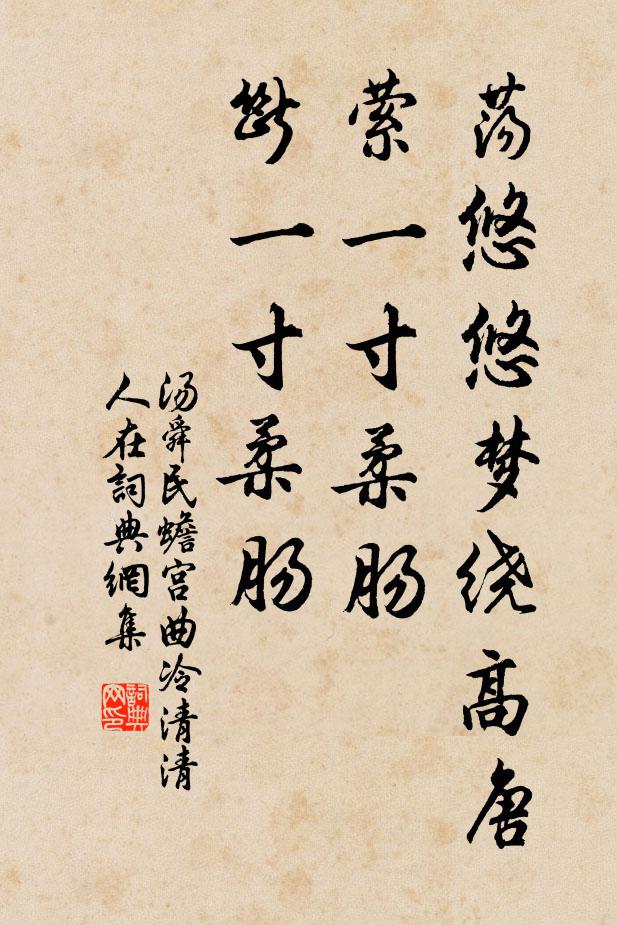 荡悠悠梦绕高唐
萦一寸柔肠
断一寸柔肠
汤舜民蟾宫曲冷清清
人在詞典網集
詞典
网印